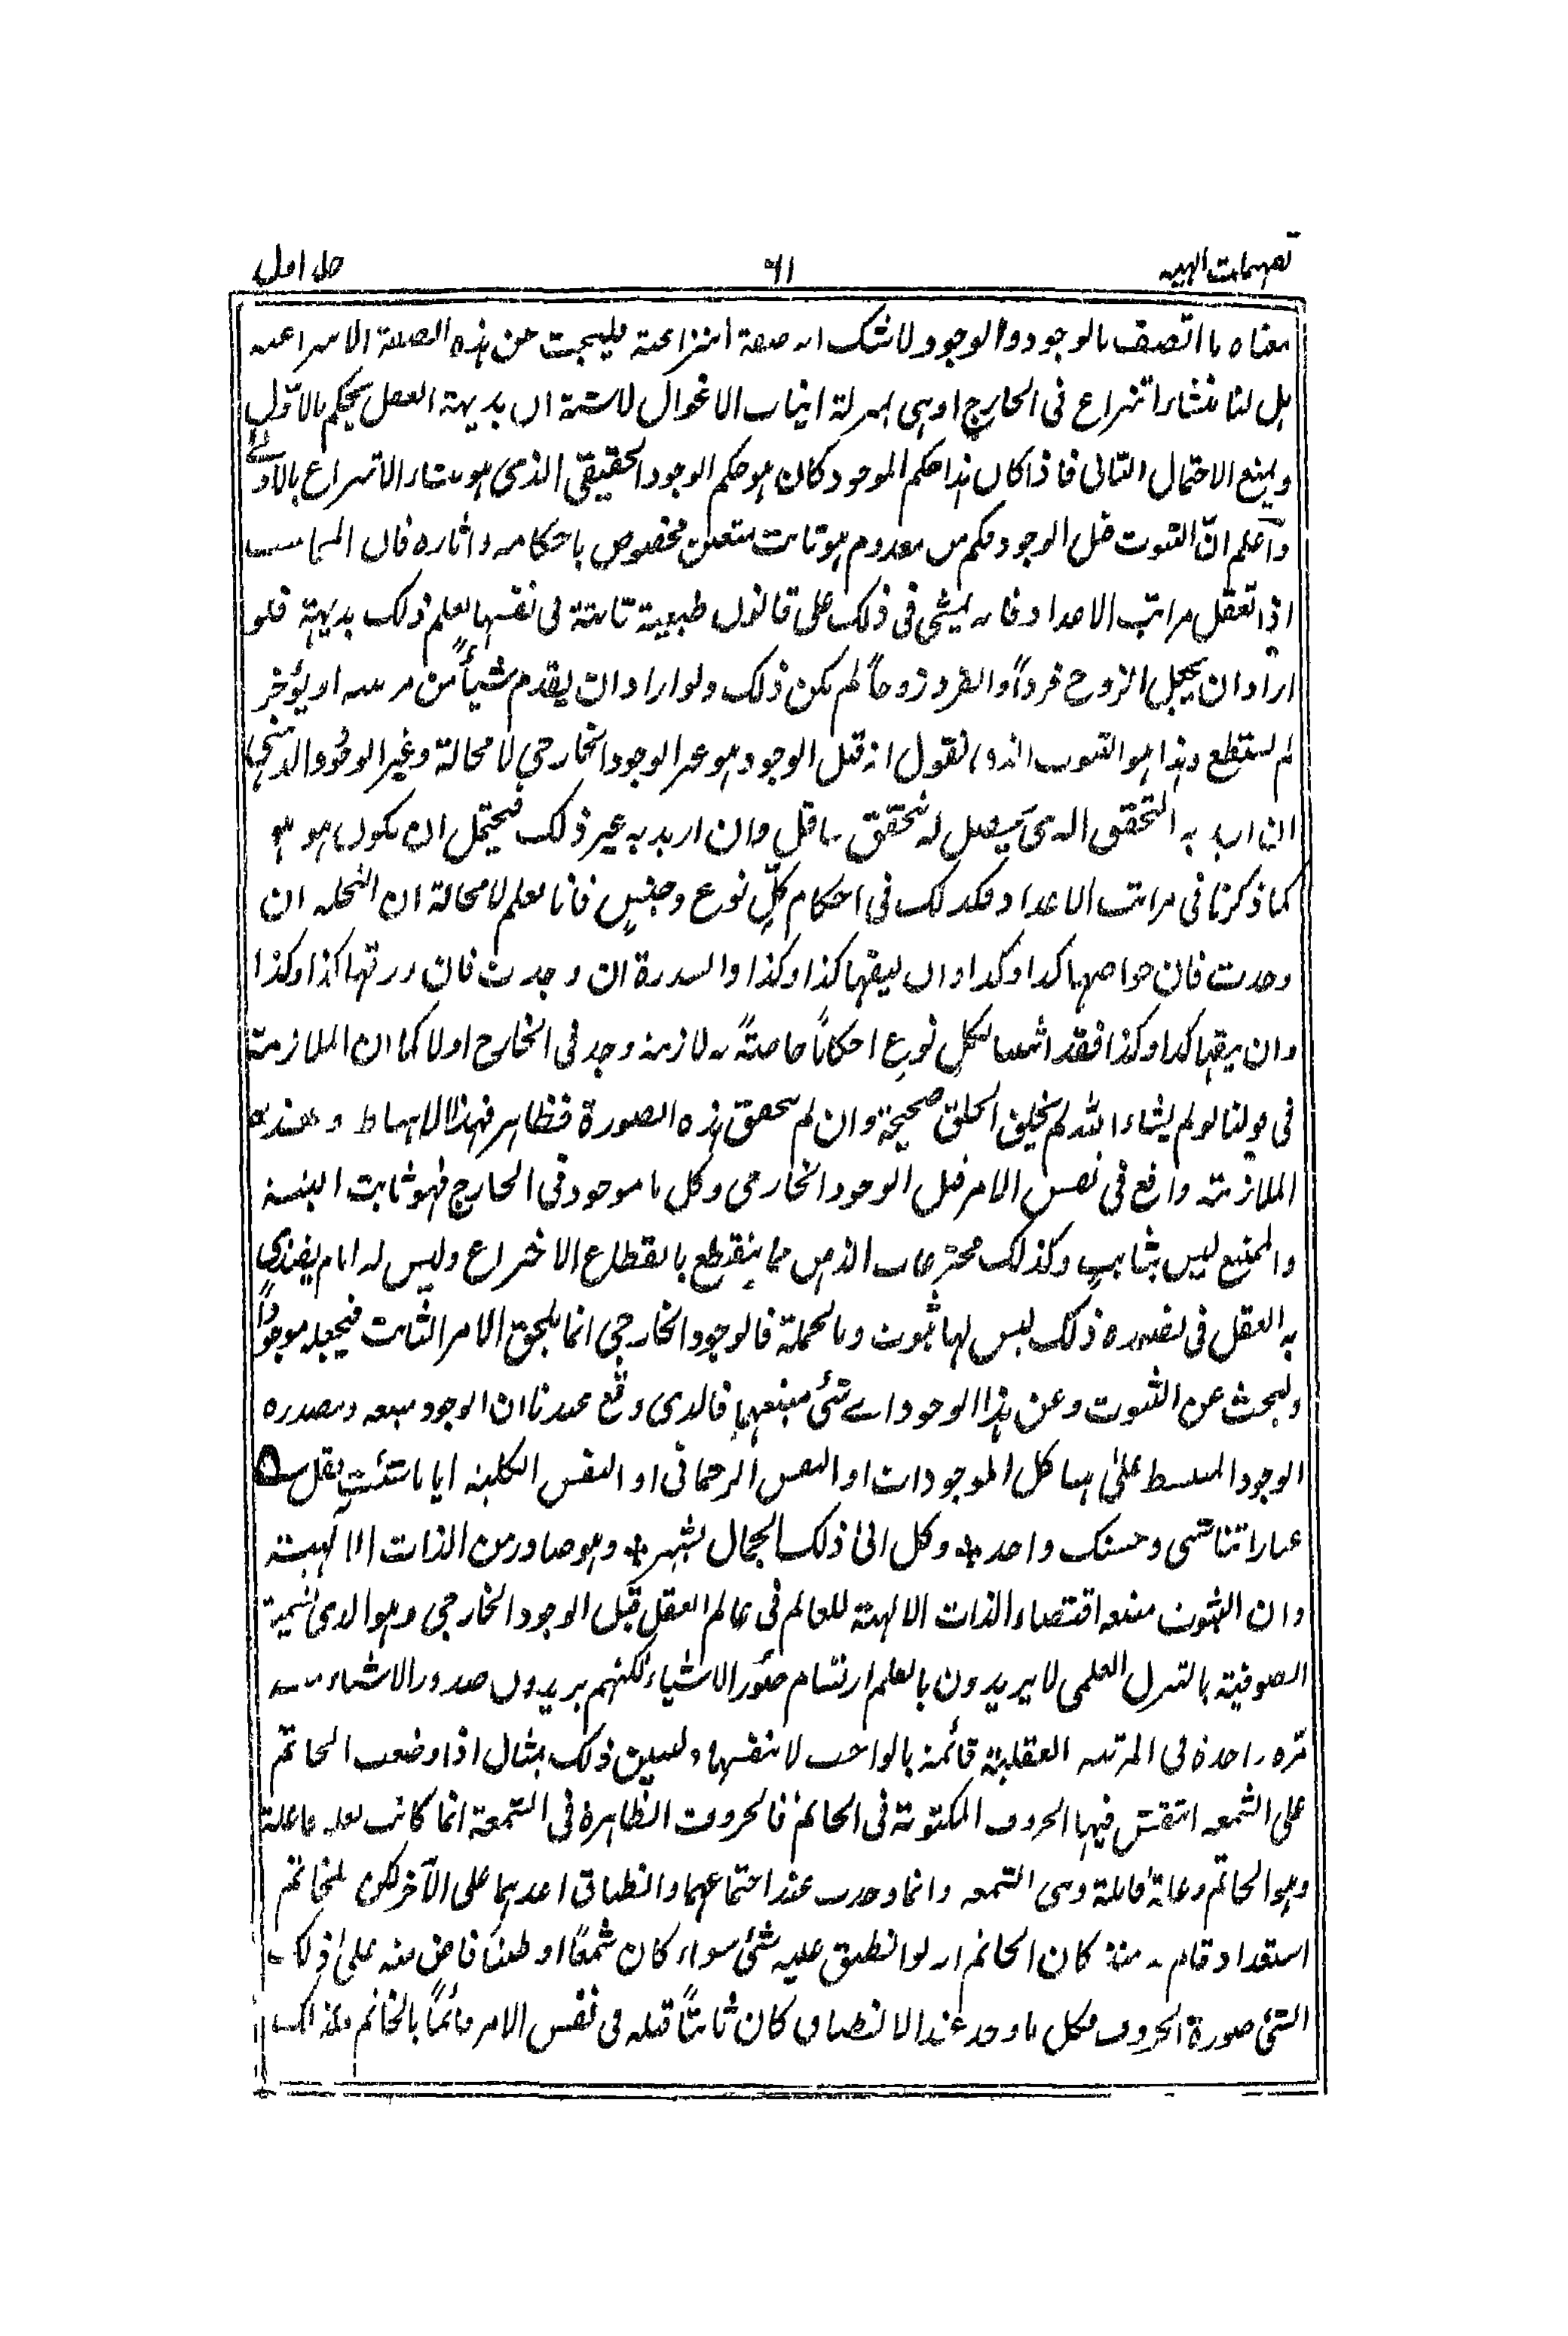 تفہیمات الٰہیہ ٦١ جلد اول
معناه ما اتصف بالوجود والوجود لا شك انه صفة انتزاعية فليبحث عن هذه الصفة الانتزاعية
هل لنا منشاء انتزاع فى الخارج او هى بمنزلة انياب الاغوال لا شبهة ان بديهة العقل يحكم بالاول
ويمنع الاحتمال الثانى فاذا كان هذا حكم الموجود كان هو حكم الوجود الحقيقى الذى هو منشاء الانتزاع بالاولى
واعلم ان الثبوت قبل الوجود فكم من معدوم هو ثابت متعين مخصوص باحكامه واثاره فان المحاسب
اذا تعقل مراتب الاعداد فانه يمشى فى ذلك على قانون طبيعية ثابتة فى نفسها يعلم ذلك بديهة فلو
اراد ان يجعل الزوج فرداً والفرد زوجاً لم يكن ذلك ولو اراد ان يقدم شيأً من مرتبته او يؤخر
لم يستطع وهذا هو الثبوت الذى نقول انه قبل الوجود وهو غير الوجود الخارجى لا محالة وغير الوجود الذهنى
ان اريد به التحقق الذى يحصل له بتحقق ما قبل وان اريد به غير ذلك فيحتمل ان يكون هو هو
كما ذكرنا فى مراتب الاعداد فكذلك فى احكام كل نوع وجنس فانا نعلم لا محالة ان النخلة ان
وجدت فان خواصها كذا وكذا وان ليفها كذا وكذا والسدرة ان وجدت فان ورقها كذا وكذا
وان نبقها كذا وكذا فقد اثبتنا لكل نوع احكاماً خاصةً به لازمة وجد فى الخارج اولا كما ان الملازمة
فى قولنا لو لم يشاء الله لم يخلق الخلق صحيحة وان لم يتحقق هذه الصورة فظاهر فهذا الارتباط وهذه
الملازمة واقع فى نفس الامر قبل الوجود الخارجى وكل ما موجود فى الخارج فهو ثابت البتة
والممتنع ليس بثابت وكذلك مخترعات الذهن مما ينقطع بانقطاع الاختراع وليس له امام يقتدى
به العقل فى تصوره ذلك ليس لها ثبوت وبالجملة فالوجود الخارجى انما يلحق الامر الثابت فيجعله موجوداً
ولبحث عن الثبوت وعن هذا الوجود اى شئ منبعهما فالذى وقع عندنا ان الوجود منبعه ومصدره
الوجود المنبسط على هياكل الموجودات او النفس الرحمانى او النفس الكلية ايا ما شئت فقل ؎
عباراتنا شتى وحسنك واحد * وكل الى ذلك الجمال يشير * وهو صادر من الذات الالهية
وان الثبوت منبعه اقتضاء الذات الالهية للعالم فى عالم العقل قبل الوجود الخارجى وهو الذى تسميه
الصوفية بالتنزل العلمى لا يريدون بالعلم ارتسام صور الاشياء لكنهم يريدون صدور الاشياء منه
مرة واحدة فى المرتبة العقلية قائمة بالواجب لا بنفسها ولنبين ذلك بمثال اذا وضعت الخاتم
على الشمعة انتقش فيها الحروف المكتوبة فى الخاتم فالحروف الظاهرة فى الشمعة انما كانت لعلة فاعلة
وهو الخاتم وعلة قابلة وهى الشمعة وانما وجدت عند اجتماعهما وانطباق احدهما على الآخر لكن للخاتم
استعداد قام به منذ كان الخاتم انه لو انطبق عليه شئ سواء كان شمعاً او طيناً فاض منه على ذلك
الشئ صورة الحروف فكل ما وجد عند الانطباق كان ثابتاً قبله فى نفس الامر قائماً بالخاتم فكذلك